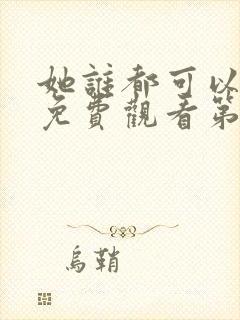 她誰都可以
免費觀看第
烏鞘